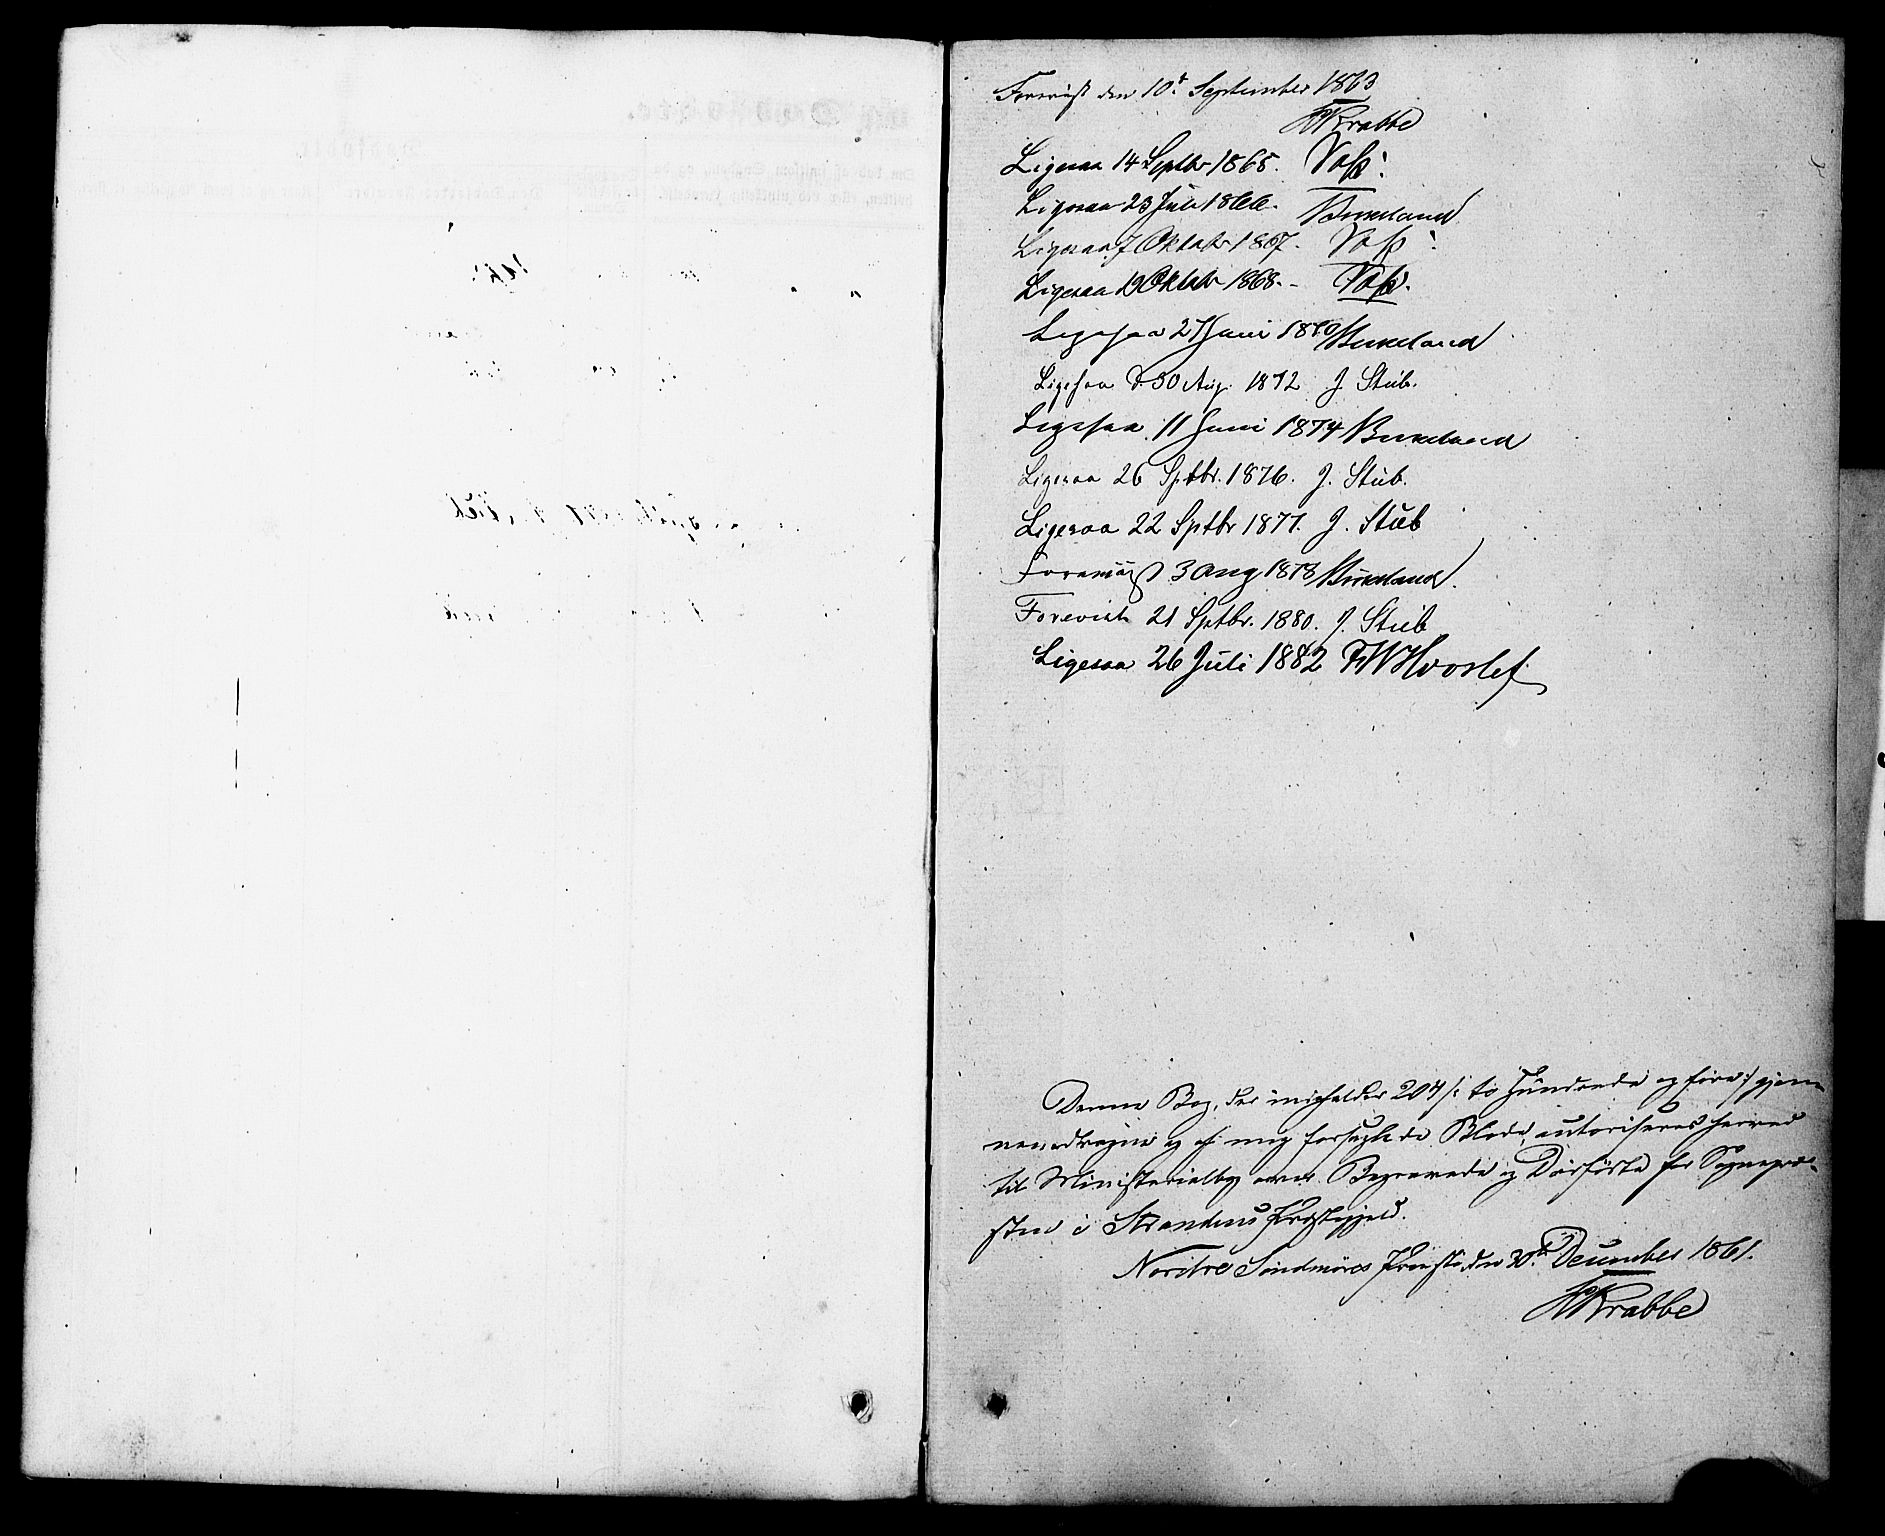 Forevist den 10de September 1863
Krabbe
Ligesaa 14 Septbr 1865. Voss:
Ligesaa 23 Juli 1866. Birkeland
Ligesaa 7 Oktobr 1867. Voss:
Ligesaa Oktobr 1868. - Voss.
Ligesaa 27 Juni 1870 Birkeland
Ligesaa d. 30 Aug. 1872 J. Stub.
Ligesaa 11 Juni 1874 Birkeland
Ligesaa 26 Sptbr. 1876. J. Stub.
Ligesaa 22 Sptbr 1877. J. Stub
Forevist 3 Aug 1878 Birkeland.
Forevist 21 Sptbr. 1880. J. Stub
Ligesaa 26 Juli 1882 FWHvoslef
Denne Bog, der indeholder 204 /: to Hundrede og fire :/ gjen-
nemdragne og af mig forseglede Blade, autoriseres herved
til Ministerialbog over Begravede og Dødfødte for Sognepræ-
sten i Strandens Præstegjeld.
Nordre Søndmøres Provsti den 30te December 1861.
Krabbe